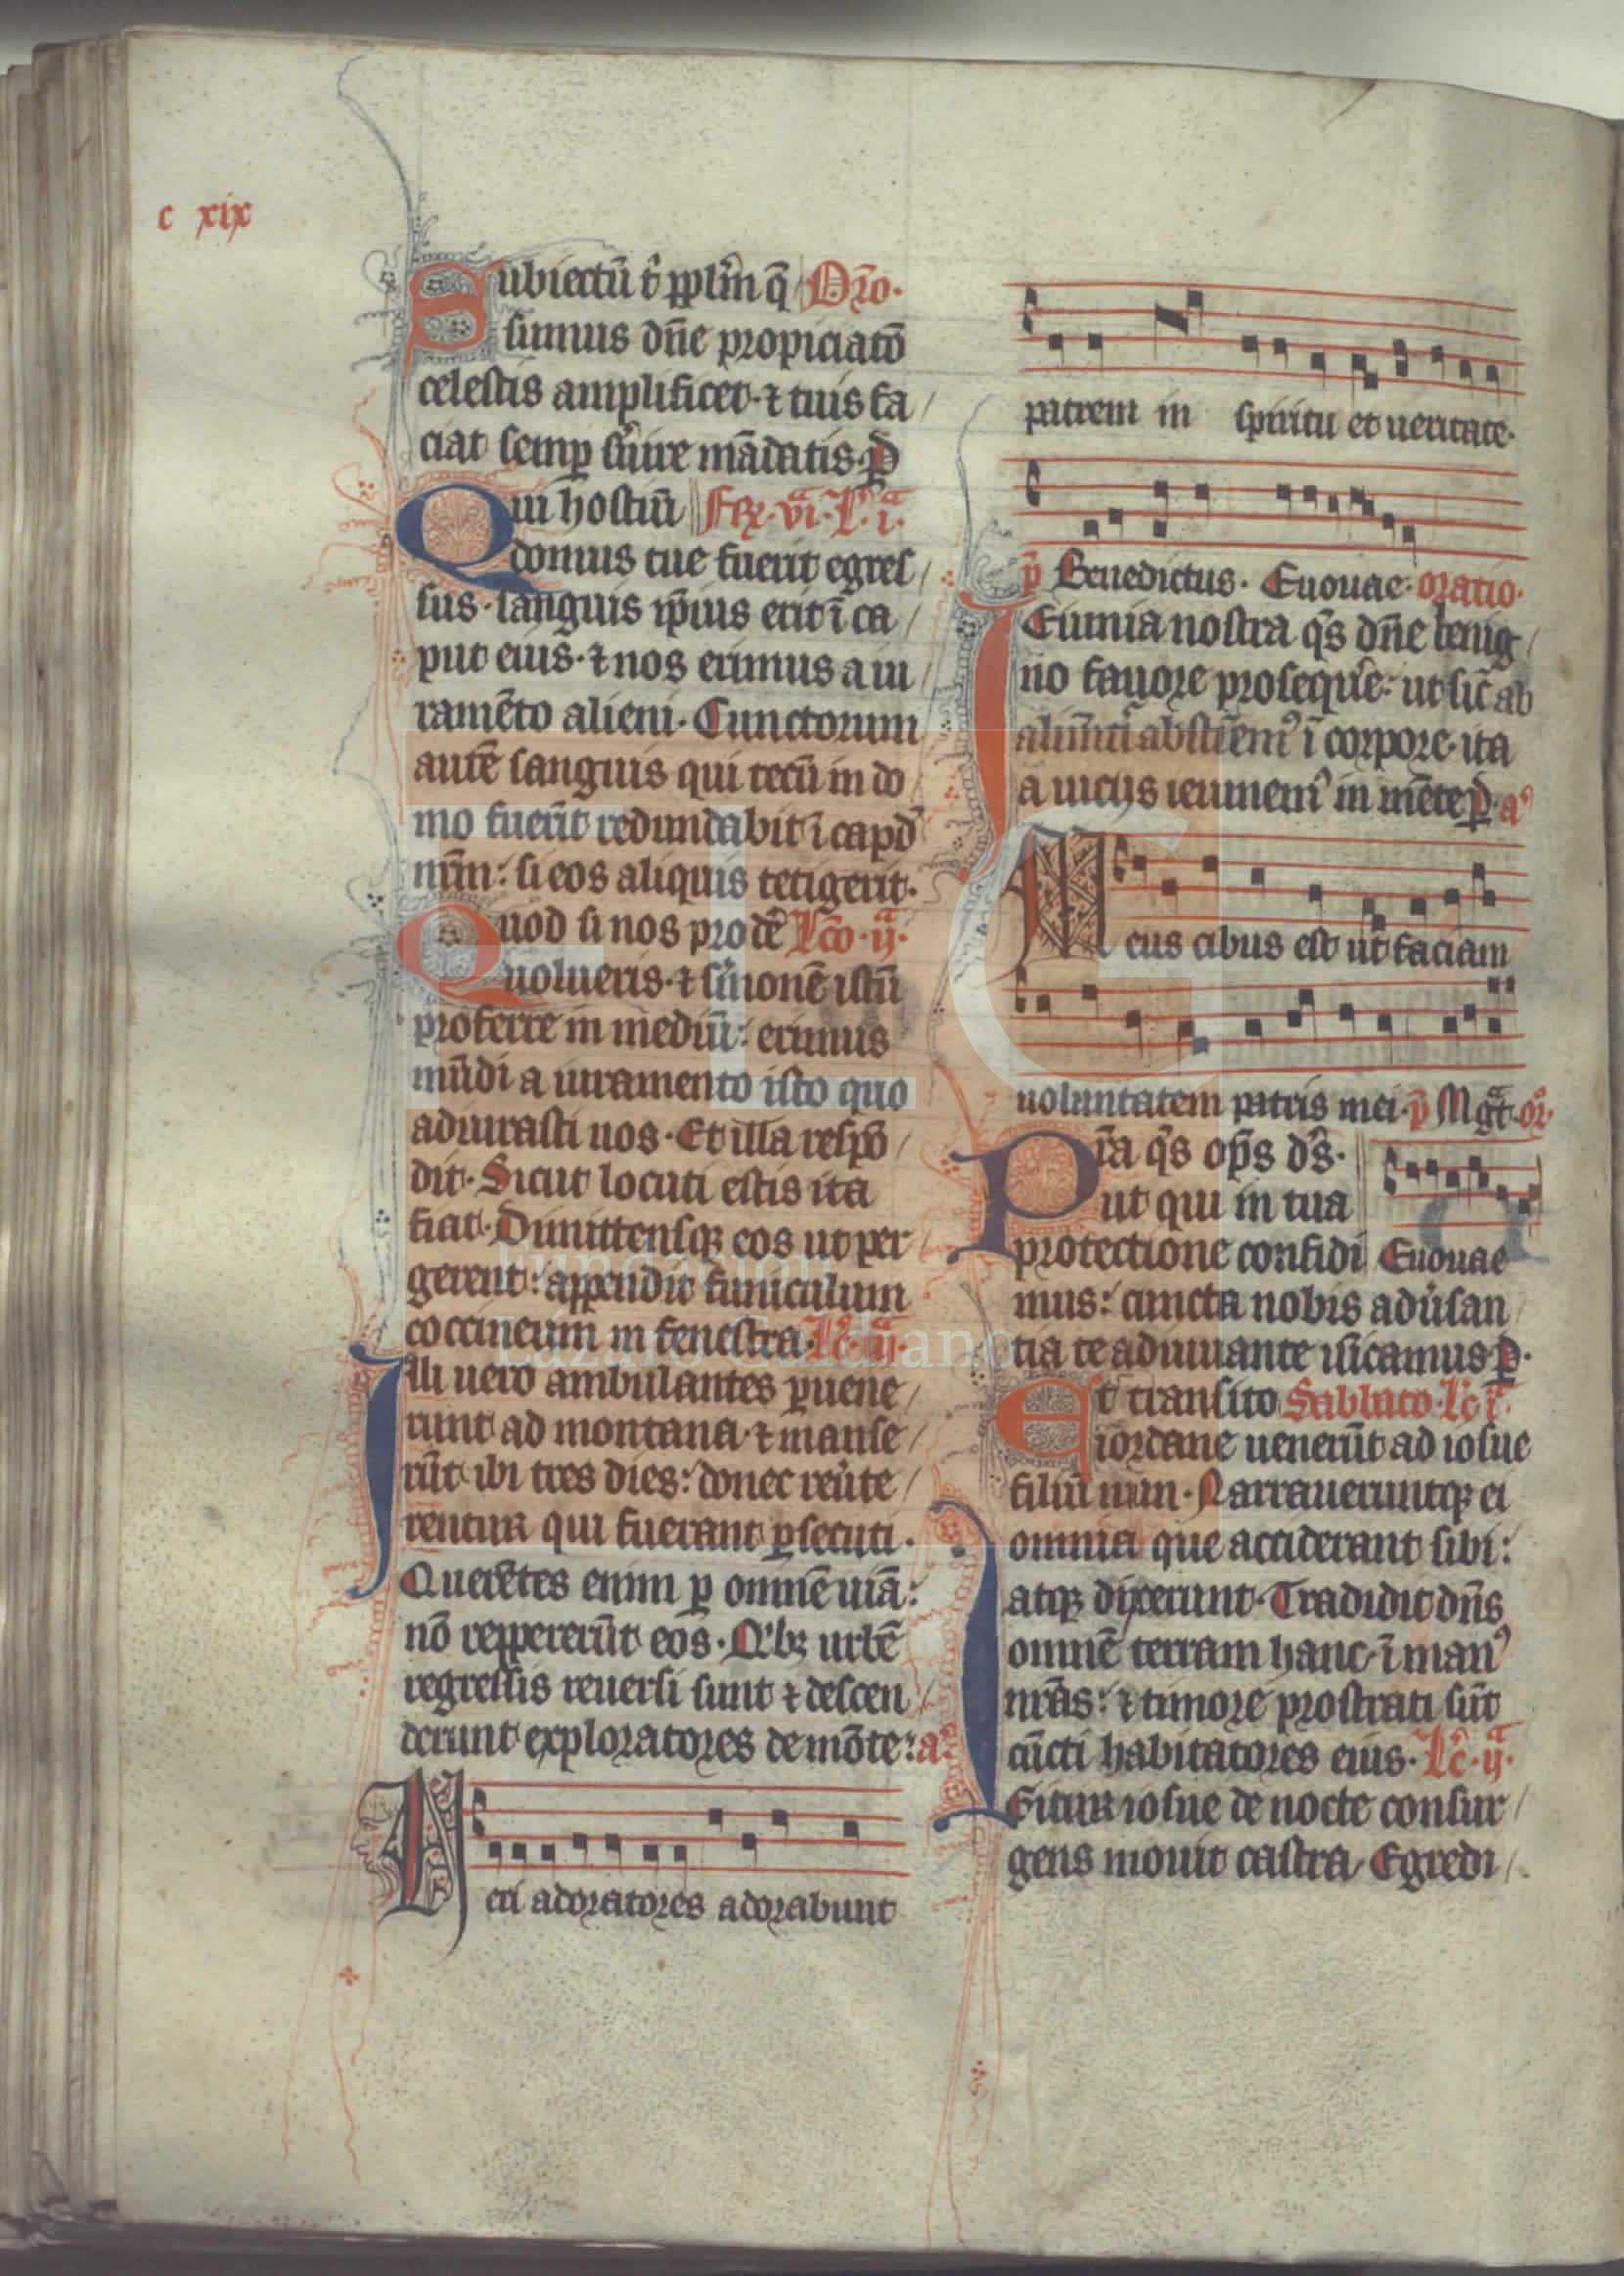 c xix
Subiectū t̄ pplm̄ q̄ Oŕo.
sumus dn̄e propiciatō
celestis amplificet. ⁊ tuis fa /
ciat semꝑ suire mādatis. P̄
Qui hostiū Fer. vi. L. i.
domus tue fuerit egres /
sus. sanguis ip̄ius erit ī ca /
put eius. ⁊ nos erimus a iu /
ramēto alieni. Cunctorum
autē sanguis qui tecū in do
mo fuerit redundabit ī capd
nrm̄: si eos aliquis tetigerit.
Quod si nos prodē Lc̄o. ij.
uolueris. ⁊ sermonē istū
proferre in mediū: erimus
mūdi a iuramento isto quo
adiurasti nos. Et illa respō /
dit. Sicut locuti estis ita
fiat. Dimittensqꝫ eos ut per
gerent: appendit funiculum
coccineum in fenestra. Lc̄. iij.
Illi uero ambulantes ꝑuene /
runt ad montana. ⁊ manse /
rūt ibi tres dies: donec reute /
rentur qui fuerant ꝑsecuti.
Querētes enim ꝑ omnē uiā:
nō reppererūt eos. Qibꝫ urbē
regressis reuersi sunt ⁊ descen /
derunt exploratores de mōte: a
Ueri adoratores adorabunt
patrem in spiritu et ueritate.
p̄ Benedictus. Euouae. oratio.
Ieiunia nostra qs̄ dn̄e benig /
no fauore proseqre: ut sic̄ ab
alimtis abstiem⁹ ī corpore. ita
a uicijs ieiunem⁹ in mēte p̄. a
Meus cibus est ut faciam
uoluntatem patris mei. p̄ Mgt. or̄.
Pr̄a qs̄ op̄s ds̄.
ut qui in tua
protectione confidi Euouae
mus: cuncta nobis adusan
tia te adiuuante uicamus. P̄.
Et transito Sabbato. Lc̄ i.
iordane uenerūt ad iosue
filiū nun. Narraueruntqꝫ ei
omnia que acciderant sibi:
atqꝫ dixerunt. Tradidit dn̄s
omnē terram hanc ī man⁹
nrās: ⁊ timore prostrati sūt
cūcti habitatores eius. Lc̄. ij.
Igitur iosue de nocte consur /
gens mouit castra. Egredi /